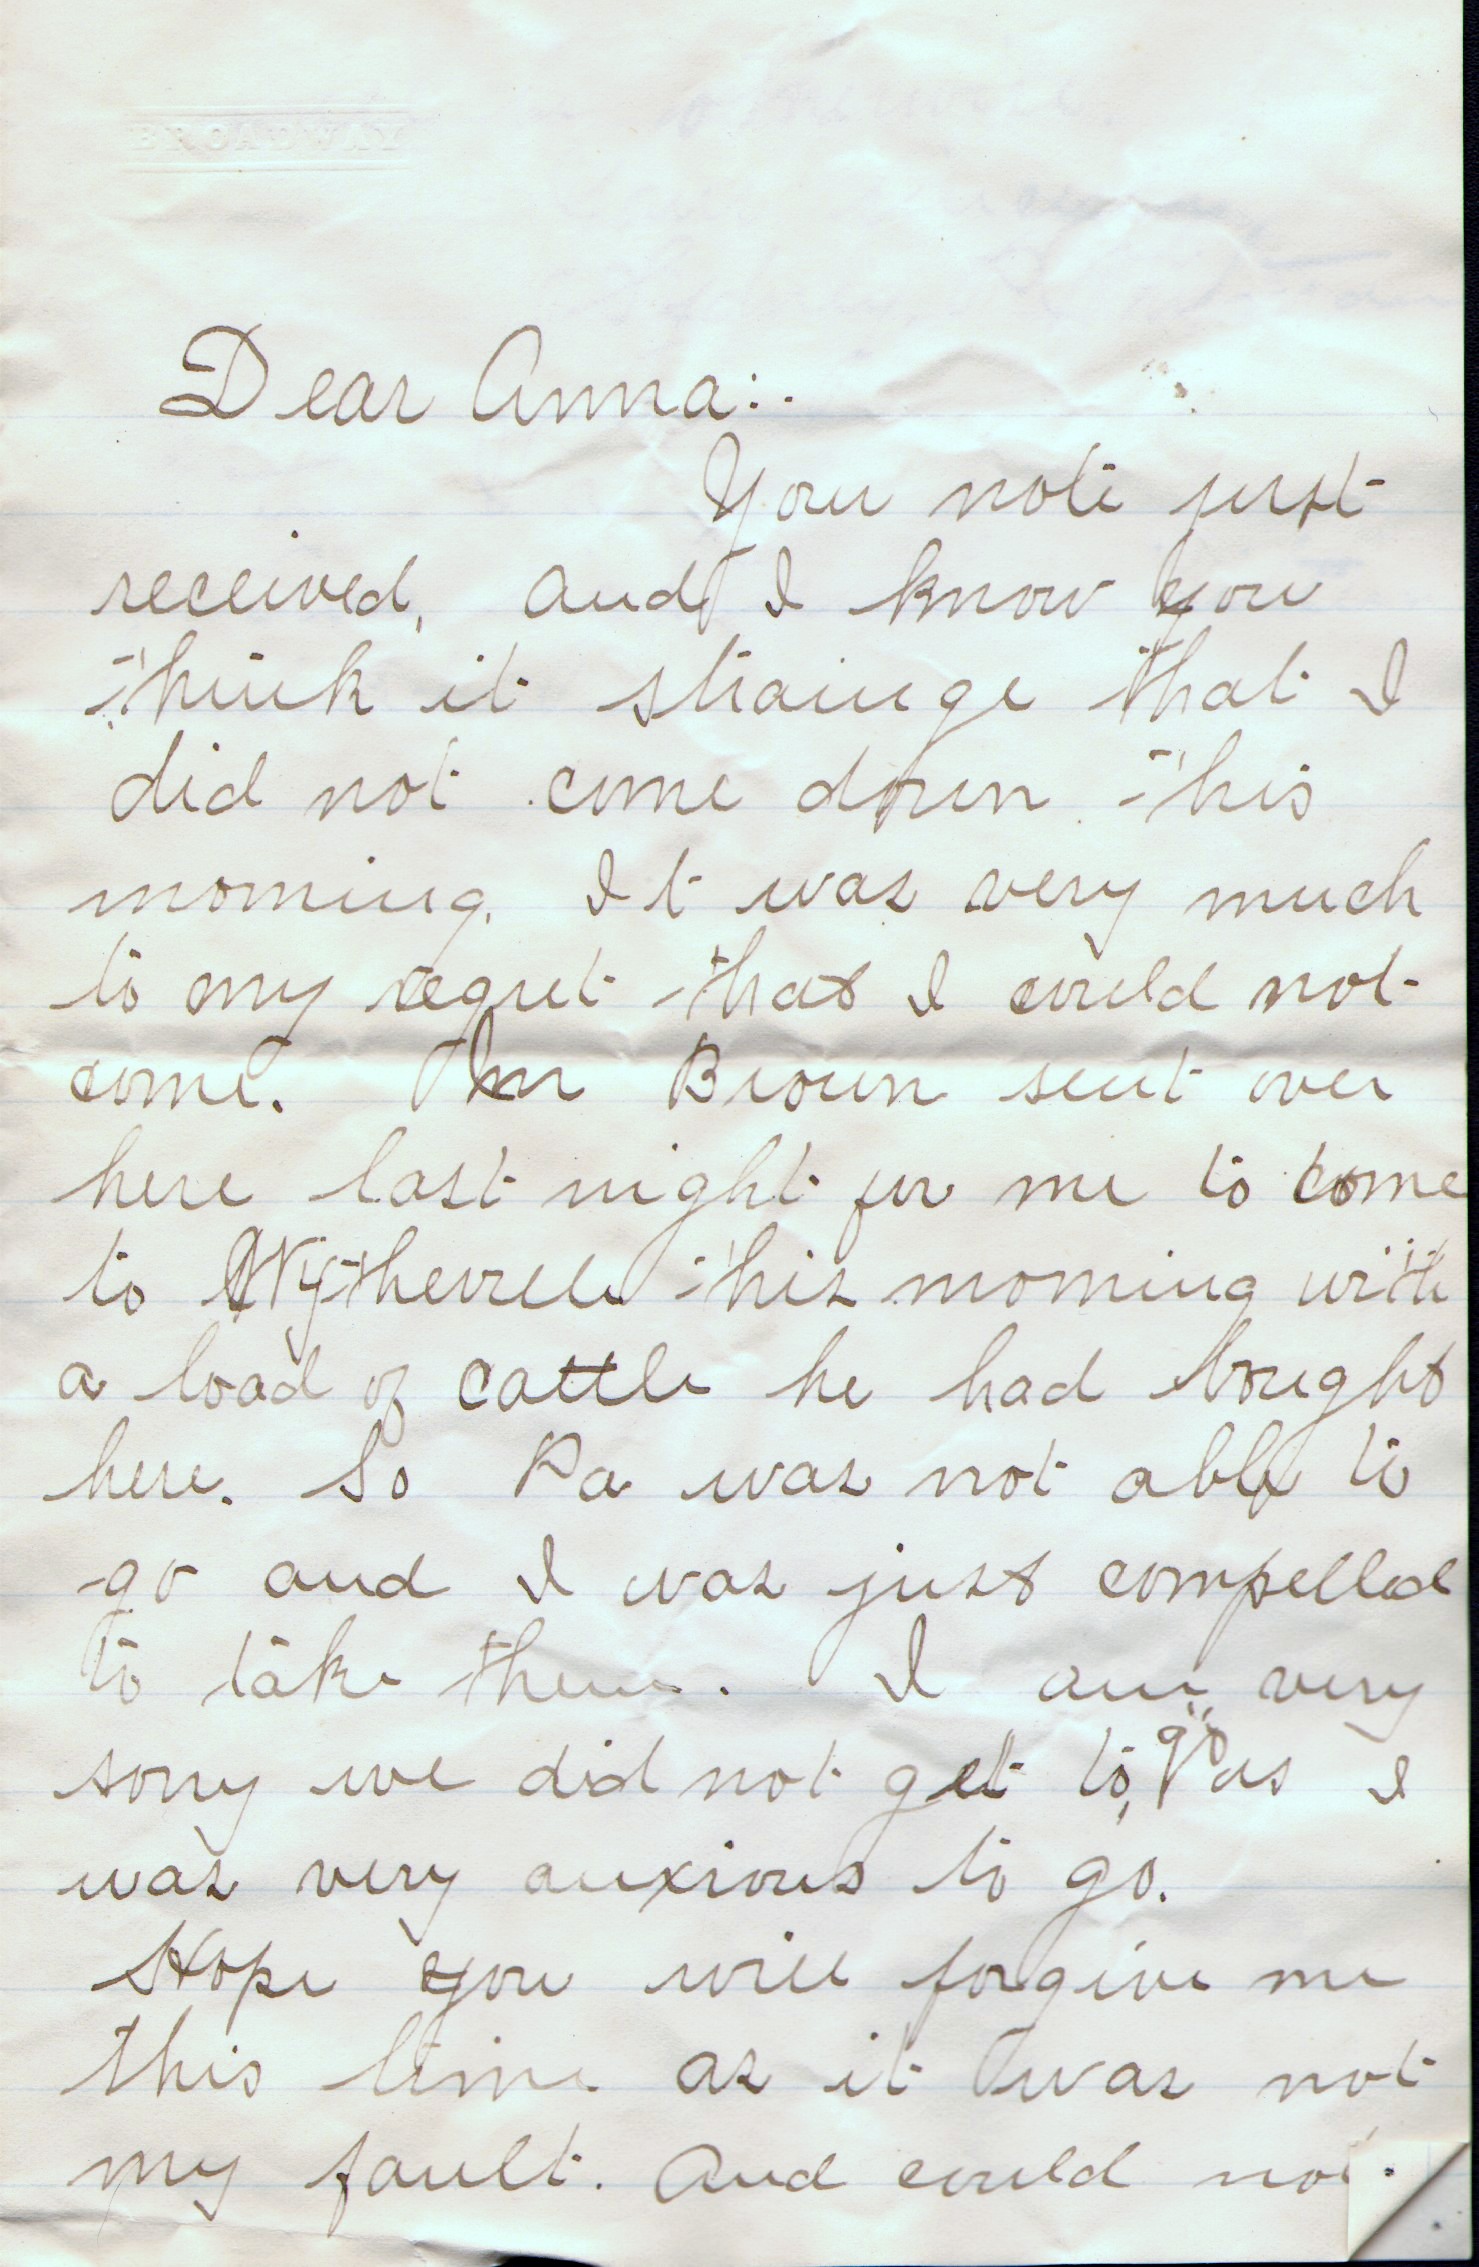 BROADWAY
Dear Anna:.
Your note just
received, and I know you
think it strainge that I
did not come down this
morning. It was very much
to my regret that I could not
come. Mr Brown sent over
here last night for me to come
to Wytheville this morning with
a load of cattle he had bought
here. So Pa was not able to
go and I was just compelled
to take them. I am very
sorry we did not get to, go as I
was very anxious to go.
Hope you will forgive me
this time as it was not
my fault. And could not